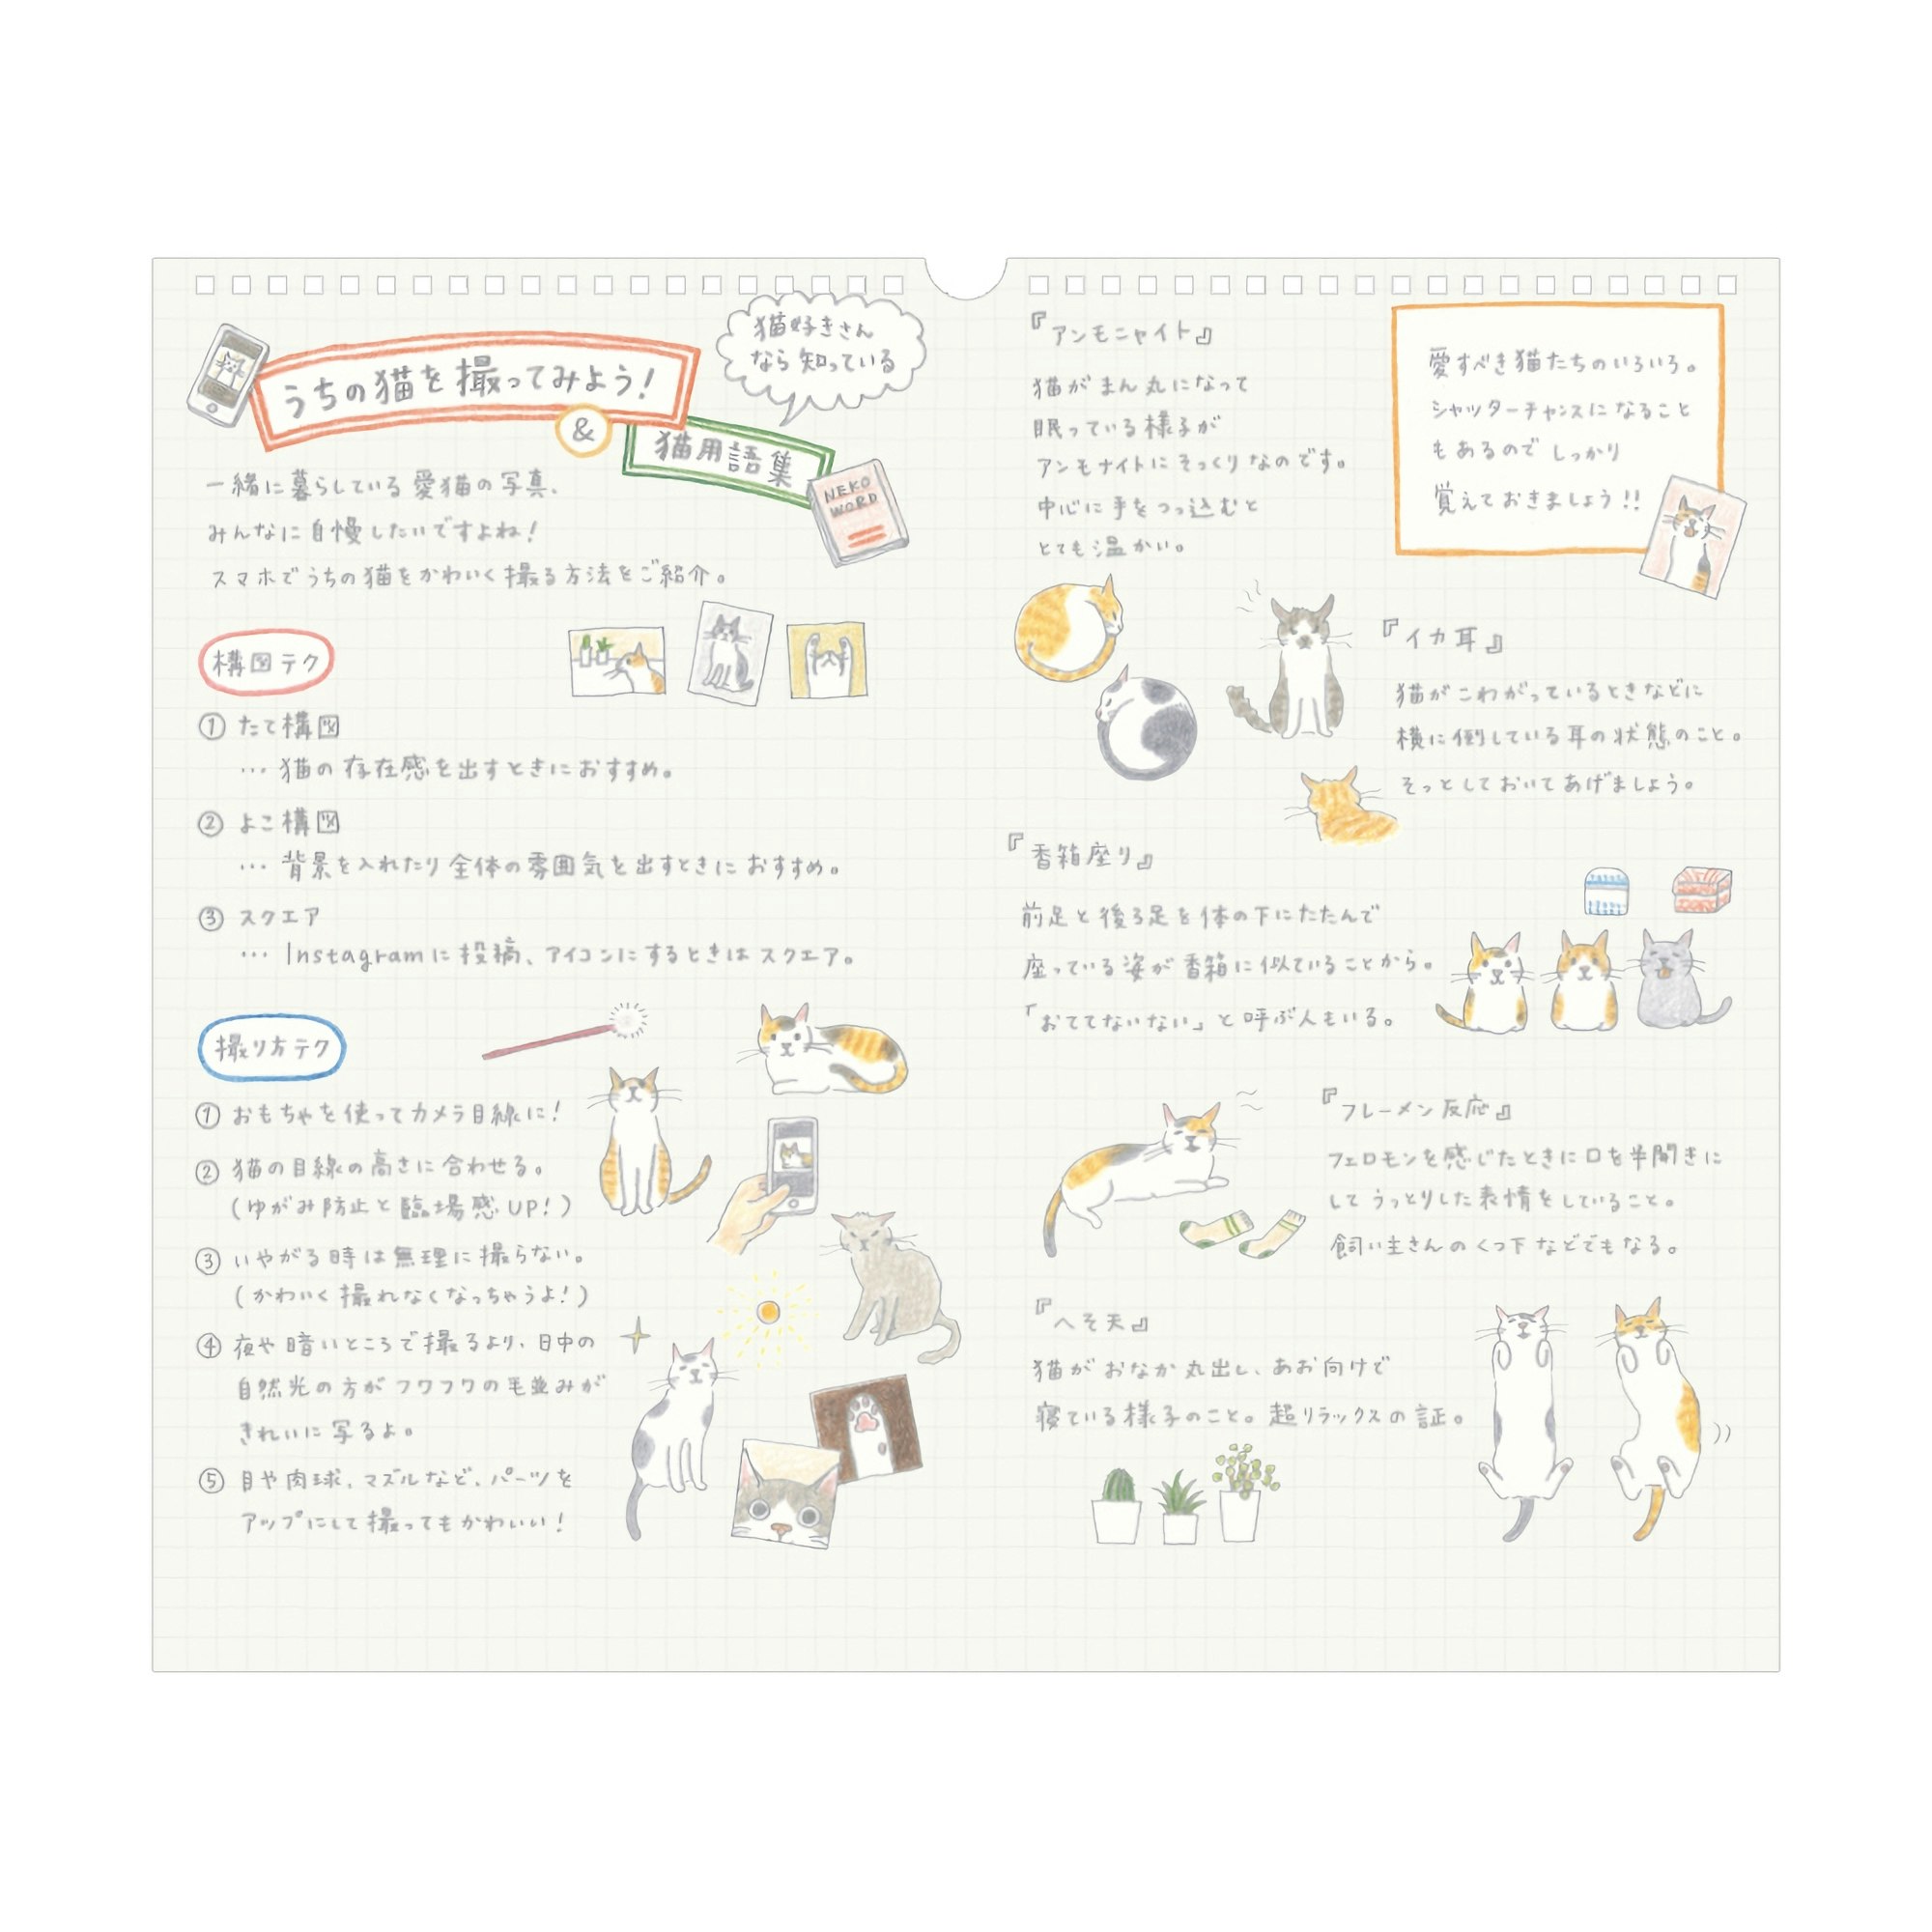 うちの猫を撮ってみよう!
&
猫好きさん
なら知っている
猫用語集
NEKO
WORD
一緒に暮らしている愛猫の写真、
みんなに自慢したいですよね!
スマホでうちの猫をかわいく撮る方法をご紹介。
構図テク
① たて構図
… 猫の存在感を出すときにおすすめ。
② よこ構図
… 背景を入れたり全体の雰囲気を出すときにおすすめ。
③ スクエア
… Instagramに投稿、アイコンにするときはスクエア。
撮り方テク
① おもちゃを使ってカメラ目線に!
② 猫の目線の高さに合わせる。
(ゆがみ防止と臨場感UP!)
③ いやがる時は無理に撮らない。
(かわいく撮れなくなっちゃうよ!)
④ 夜や暗いところで撮るより、日中の
自然光の方がフワフワの毛並みが
きれいに写るよ。
⑤ 目や肉球、マズルなど、パーツを
アップにして撮ってもかわいい!
『アンモニャイト』
猫がまん丸になって
眠っている様子が
アンモナイトにそっくりなのです。
中心に手をつっ込むと
とても温かい。
愛すべき猫たちのいろいろ。
シャッターチャンスになること
もあるのでしっかり
覚えておきましょう!!
『イカ耳』
猫がこわがっているときなどに
横に倒している耳の状態のこと。
そっとしておいてあげましょう。
『香箱座り』
前足と後ろ足を体の下にたたんで
座っている姿が香箱に似ていることから。
「おててないない」と呼ぶ人もいる。
『フレーメン反応』
フェロモンを感じたときに口を半開きに
してうっとりした表情をしていること。
飼い主さんのくつ下などでもなる。
『へそ天』
猫がおなか丸出し、あお向けで
寝ている様子のこと。超リラックスの証。